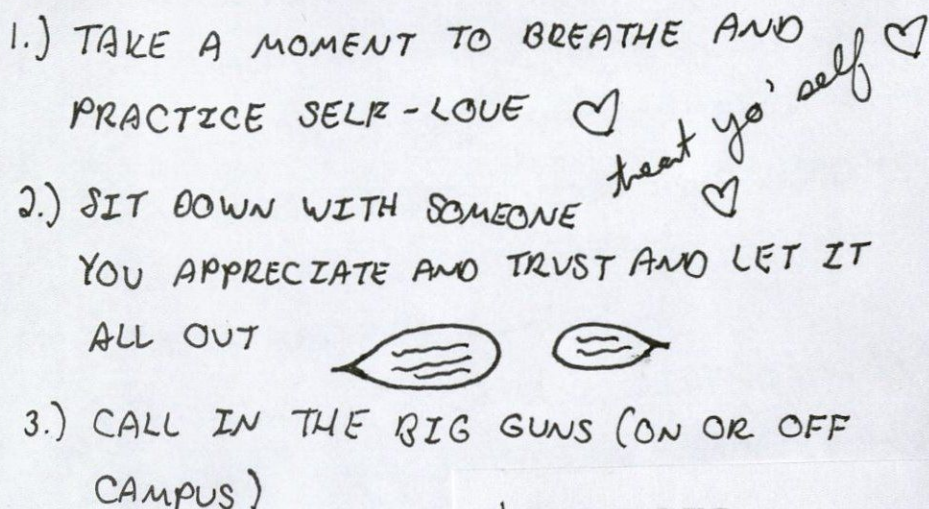 1.) TAKE A MOMENT TO BREATHE AND
PRACTICE SELF-LOVE
treat yo' self
2.) SIT DOWN WITH SOMEONE
YOU APPRECIATE AND TRUST AND LET IT
ALL OUT
3.) CALL IN THE BIG GUNS (ON OR OFF
CAMPUS)